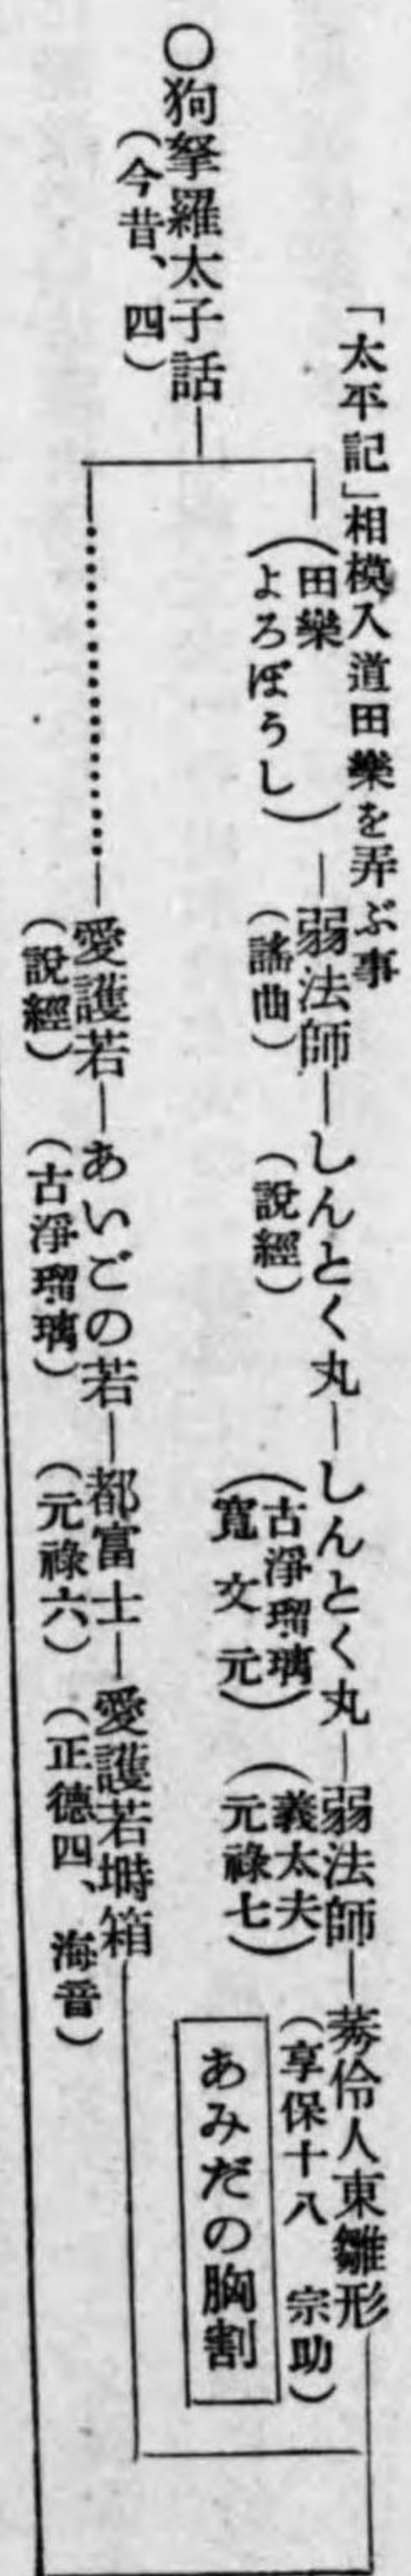 ○狗拏羅太子話
（今昔、四）
「太平記」相模入道田樂を弄ぶ事
（田樂
よろぼうし）
弱法師
（謠曲）
しんとく丸
（說經）
しんとく丸
（古淨瑠璃
寬文元）
弱法師
（義太夫
元祿七）
莠伶人東雛形
（享保十八　宗助）
あみだの胸割
愛護若
（說經）
あいごの若
（古淨瑠璃）
都富士
（元祿六）
愛護若塒箱
（正德四、海音）